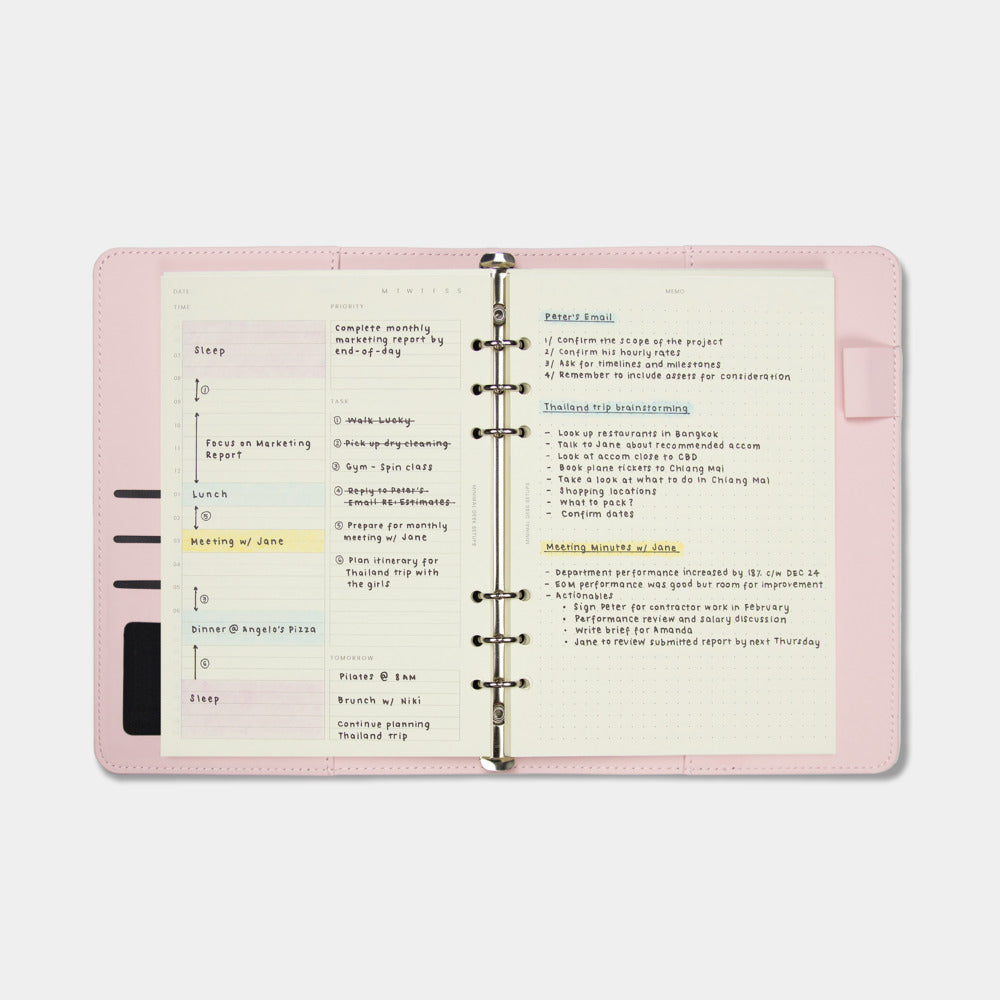 DATE
M T W T F S S
TIME
Sleep
07
08
①
09
10
Focus on Marketing
Report
11
12
Lunch
01
02
⑤
03
Meeting w/ Jane
04
05
③
06
Dinner @ Angelo's Pizza
⑥
Sleep
PRIORITY
Complete monthly
marketing report by
end-of-day
TASK
① Walk Lucky
② Pick up dry cleaning
③ Gym - Spin class
④ Reply to Peter's
Email RE: Estimates
⑤ Prepare for monthly
meeting w/ Jane
⑥ Plan itinerary for
Thailand trip with
the girls
TOMORROW
Pilates @ 8AM
Brunch w/ Niki
Continue planning
Thailand trip
MINIMAL DESK SETUPS
MINIMAL DESK SETUPS
MEMO
Peter's Email
1/ Confirm the scope of the project
2/ Confirm his hourly rates
3/ Ask for timelines and milestones
4/ Remember to include assets for consideration
Thailand trip brainstorming
- Look up restaurants in Bangkok
- Talk to Jane about recommended accom
- Look at accom close to CBD
- Book plane tickets to Chiang Mai
- Take a look at what to do in Chiang Mai
- Shopping locations
- What to pack?
- Confirm dates
Meeting Minutes w/ Jane
- Department performance increased by 18% c/w DEC 24
- EOM performance was good but room for improvement
- Actionables
• Sign Peter for contractor work in February
• Performance review and salary discussion
• Write brief for Amanda
• Jane to review submitted report by next Thursday